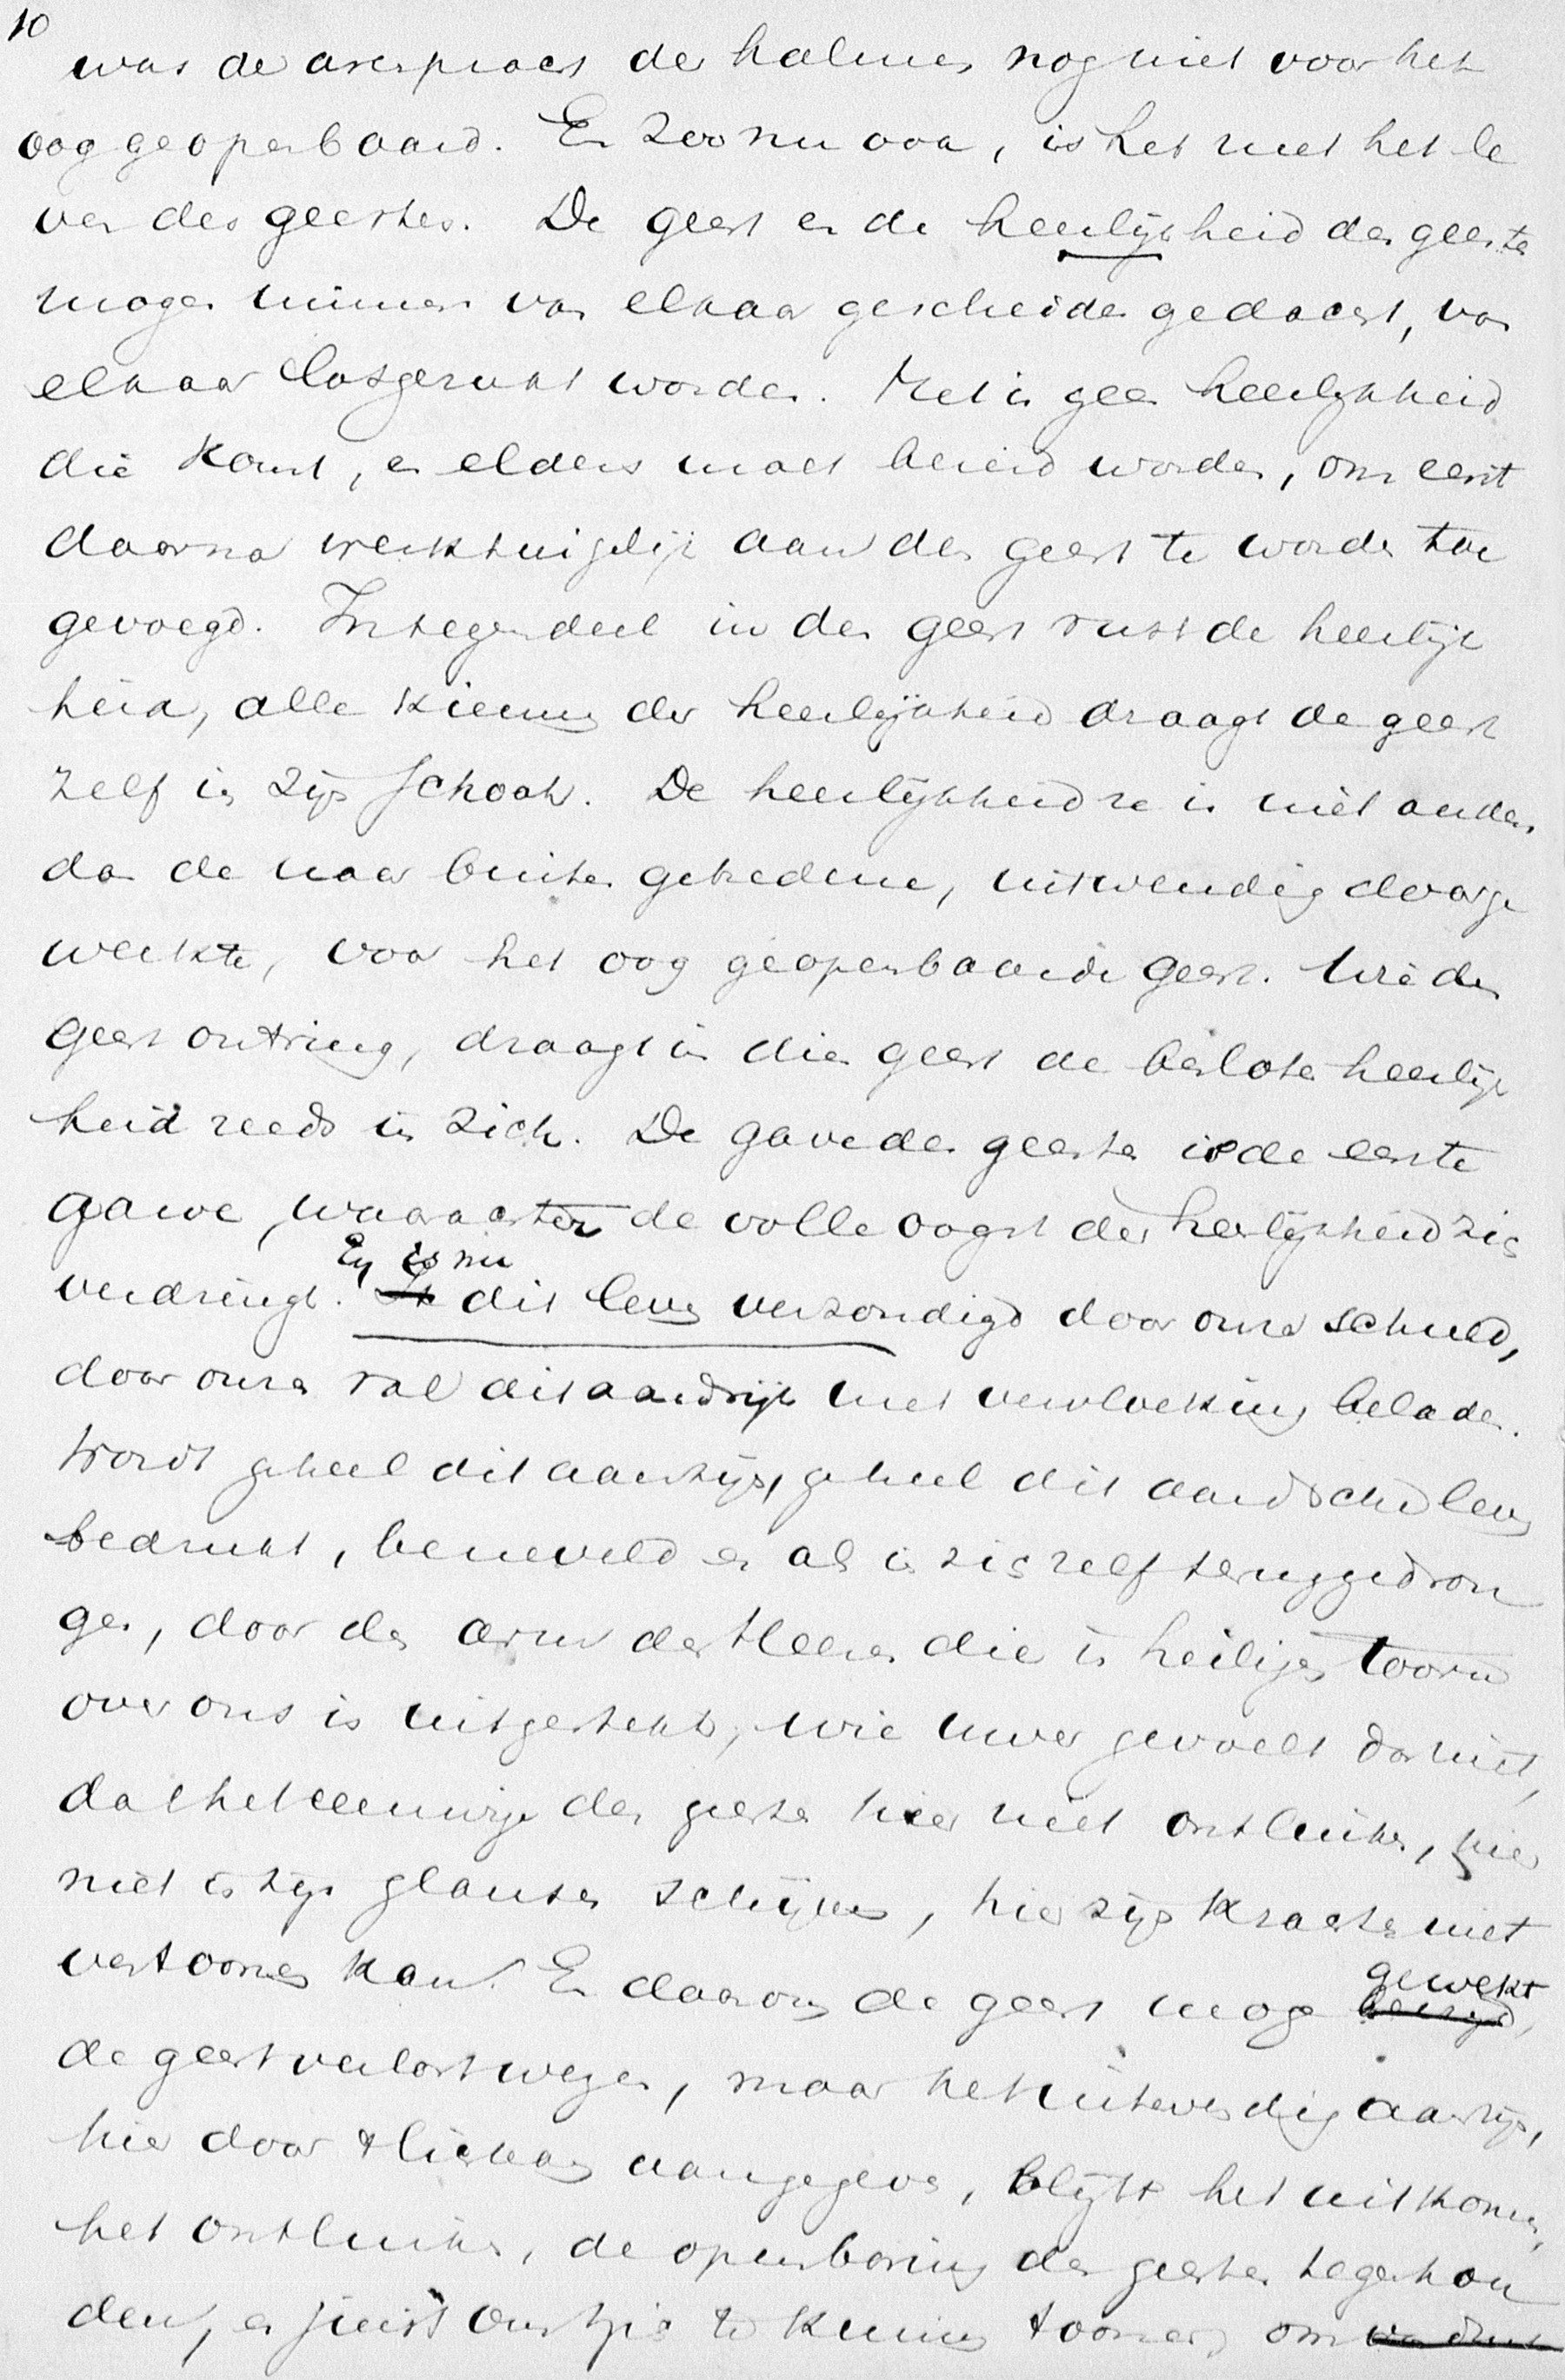 10
was de arenpracht der halmen nog niet voor het
oog geopenbaard. En zoo nu ook, is het met het le
ven des geestes. De geest en de heerlijkheid des geestes
mogen nimmer van elkaar gescheiden gedacht, van
elkaar losgerukt worden. Het is geen heerlijkheid
die komt, en elders moet bereid worden, om eerst
daarna werktuigelijk aan den geest te worden toe
gevoegd. Integendeel in den geest rust de heerlijk
heid, alle kiemen der heerlijkheid draagt de geest
zelf in zijn schoot. De heerlijkheid is niet anders
dan de naar buiten getredene, uitwendig doorge
werkte, voor het oog geopenbaarde geest. Wie den
geest ontving, draagt in dien geest de besloten heerlijk
heid reeds in zich. De gave des geestes is de eerste
gave, waarachter de volle oogst der heerlijkheid zich
verdringt. En is nu dit leven verzondigd door onze schuld,
door onzen val dit aardrijk met vervloeking beladen.
Wordt geheel dit aardrijk, geheel dit aardsche leven
bedrukt, beneveld en als in zich zelf teruggedron
gen, door den arm des Heeren die in heiligen toorn
over ons is uitgestrekt, wie uwer gevoelt dan niet,
dat het eeuwige des geestes hier niet ontluiken, hier
niet in zijn glansen schijnen, hier zijn krachten niet
vertoonen kan. En daarom de geest moge gewekt,
de geest verlost wezen, maar het uitwendig aardrijk,
hier door 't lichaam aangegeven, blijft het uitkomen,
het ontluiken, de openbaring des geestes tegenhou
den, en juist om zich te kunnen toonen, om